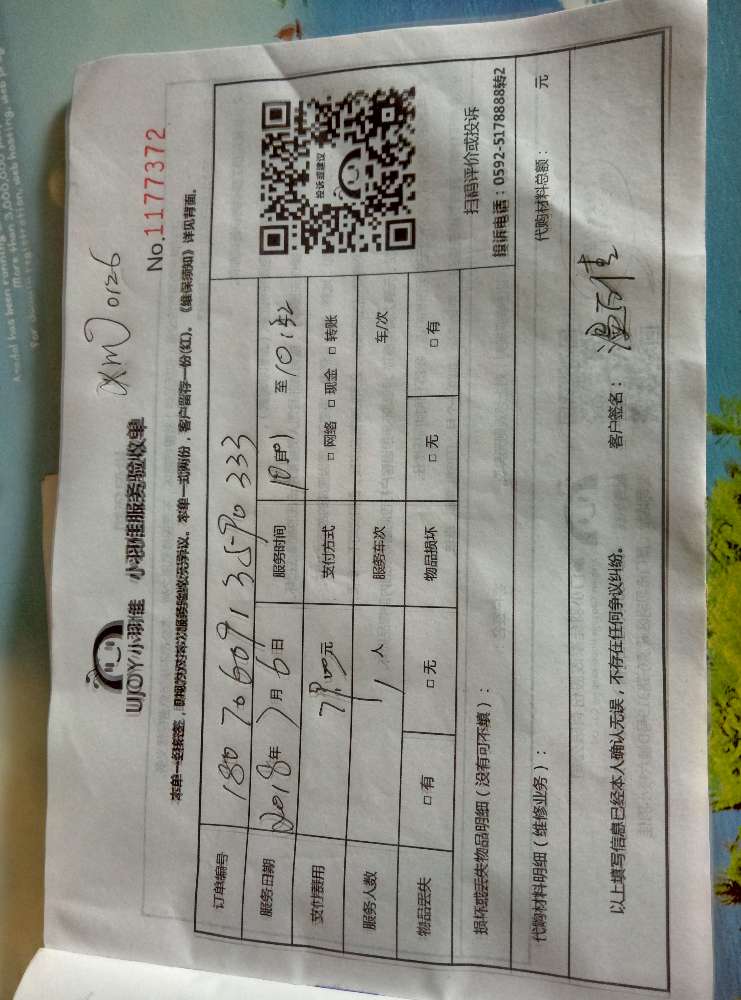 UJOY小羽佳 小羽佳服务验收单
XM 0126
No.1177372
本单一经签署，即视为对本次服务验收无异议。本单一式两份，客户留存一份(红)。《维保须知》详见背面。
订单编号 180706091 3590333
服务日期 2018年7月6日 服务时间 至10:52
支付费用 元 支付方式 □ 网络 □ 现金 □ 转账
服务人数 1人 服务车次 车/次
物品丢失 □ 有 □ 无 物品损坏 □ 无 □ 有
投诉或建议
扫码评价或投诉
投诉电话：0592-5178888转2
损坏或丢失物品明细（没有可不填）：
代购材料明细（维修业务）： 代购材料总额： 元
以上填写信息已经本人确认无误，不存在任何争议纠纷。 客户签名：